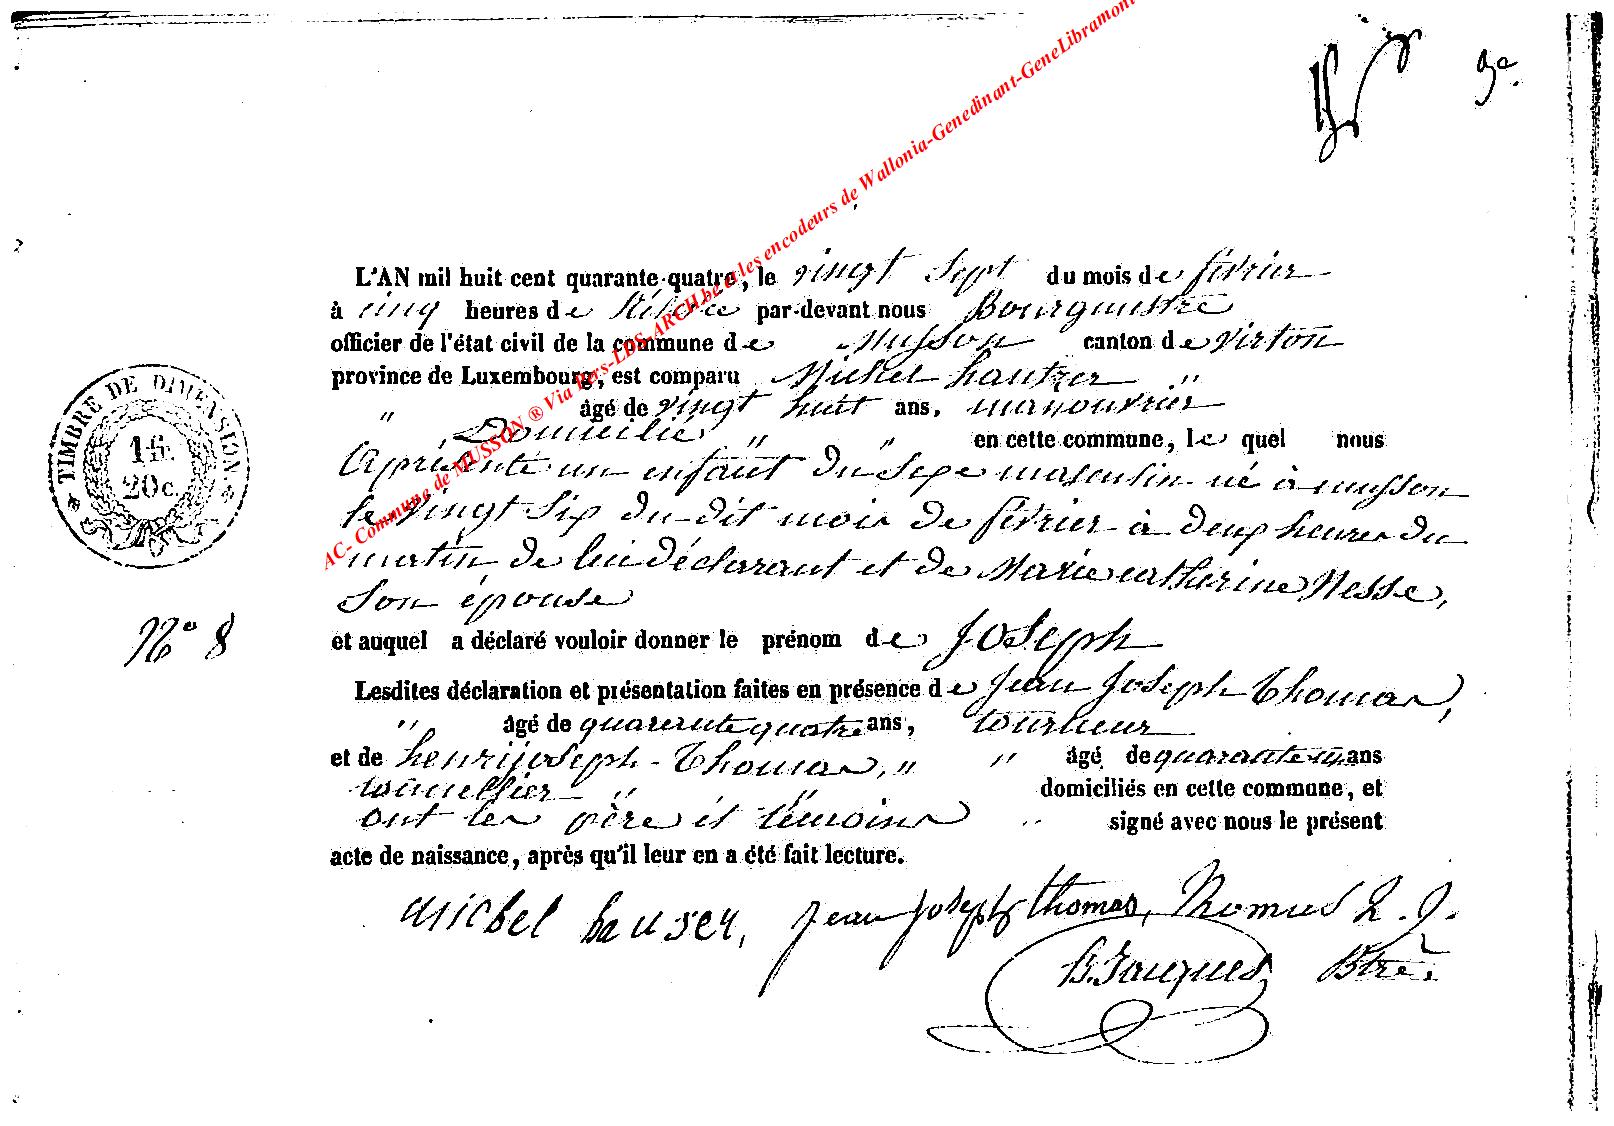 9e.
AC- Commune de MUSSON ® Via Pers-LDS-ARCH.be et les encodeurs de Wallonia-Genedinant-GeneLibramont
L'AN mil huit cent quarante-quatre, le vingt sept du mois de fevrier
à cinq heures de par-devant nous Bourgmestre
officier de l'état civil de la commune de Musson canton de Virton
province de Luxembourg, est comparu Michel hautzer "
" âgé de vingt huit ans, manouvrier
Domicilié " " en cette commune, le quel nous
a présenté un enfant du sexe masculin né à musson
le vingt six du dit mois de fevrier à deux heures du
matin de lui déclarant et de Marie catherine Nesse,
son épouse
et auquel a déclaré vouloir donner le prénom de Joseph
TIMBRE DE DIMENSION
1 fr.
20 c.
No 8
Lesdites déclaration et présentation faites en présence de Jean Joseph Thomas,
" âgé de quarente quatre ans, tourneur
et de henri joseph Thomas, " " âgé de quarante un ans
" " domiciliés en cette commune, et
ont les père et témoins " signé avec nous le présent
acte de naissance, après qu'il leur en a été fait lecture.
Michel hauser, Jean Joseph thomas, Thomas h. J.
B. Jacques, Btre.